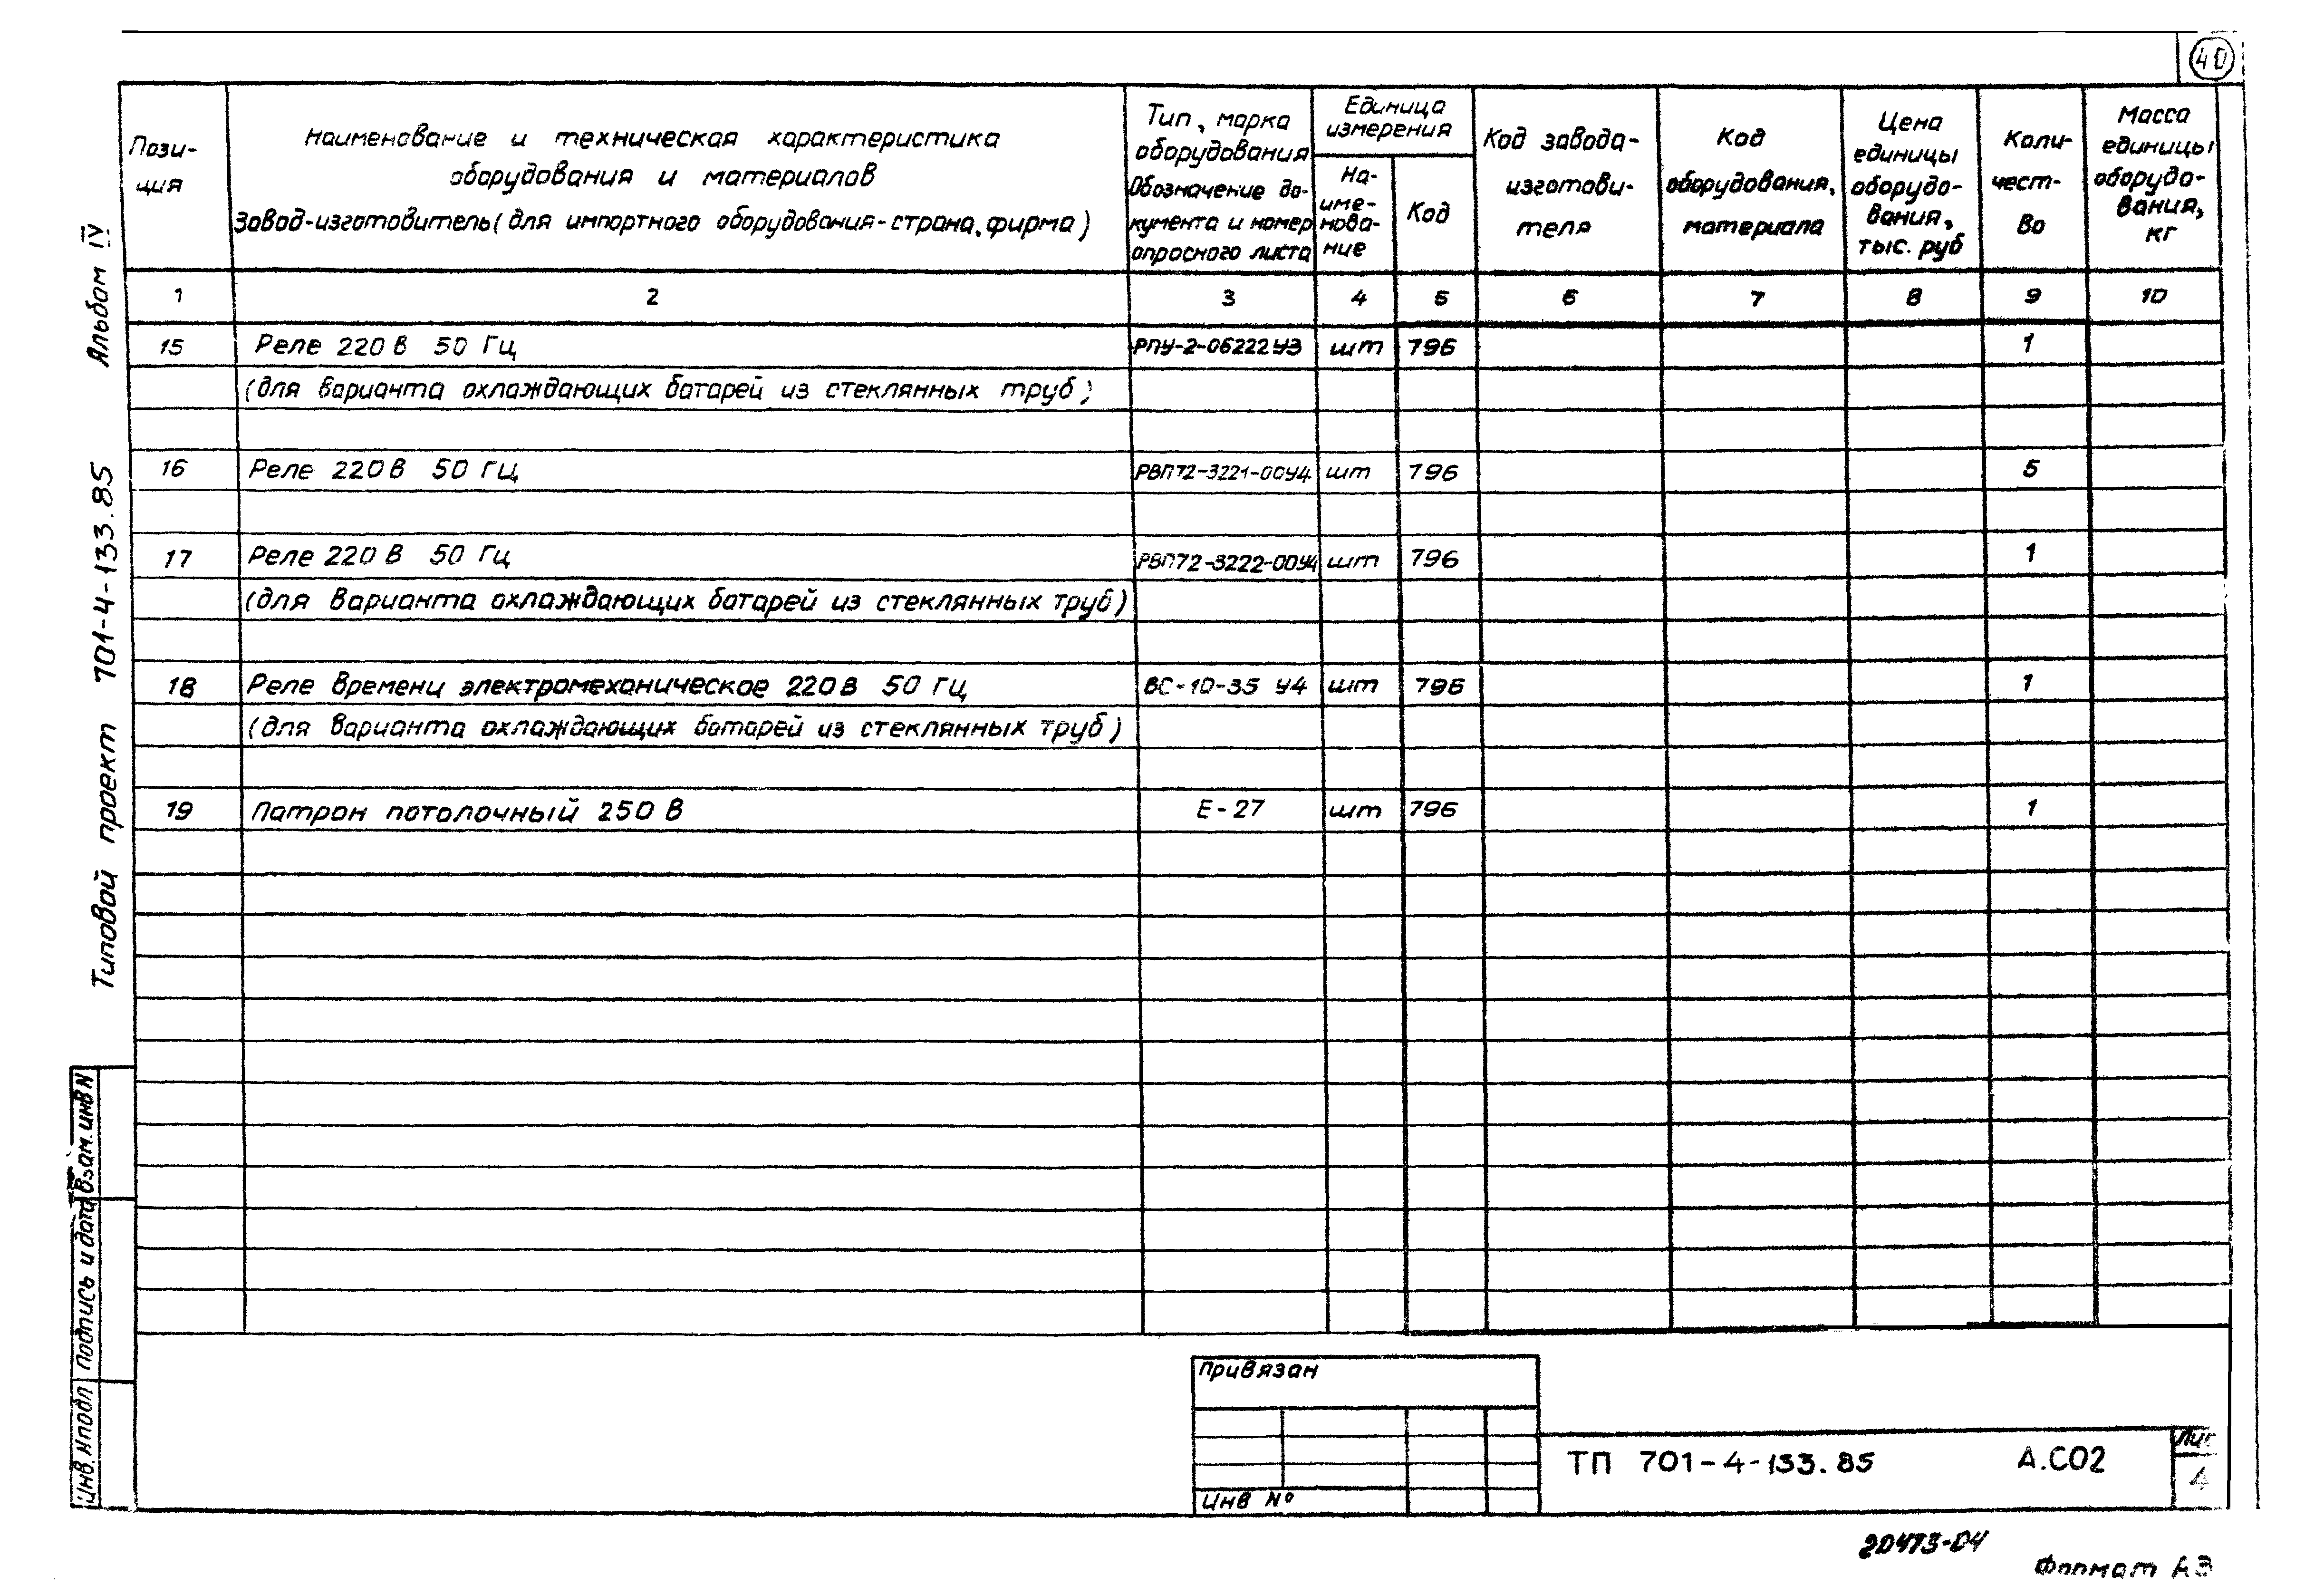 40
Пози-
ция
Наименование и техническая характеристика
оборудования и материалов
Завод-изготовитель (для импортного оборудования - страна, фирма)
Тип, марка
оборудования
Обозначение до-
кумента и номер
опросного листа
Единица
измерения
На-
име-
нова-
ние
Код
Код завода-
изготови-
теля
Код
оборудования,
материала
Цена
единицы
оборудо-
вания,
тыс. руб
Коли-
чест-
во
Масса
единицы
оборудо-
вания,
кг
1 2 3 4 5 6 7 8 9 10
15 Реле 220 В 50 Гц РПУ-2-06222У3 шт 796 1
(для варианта охлаждающих батарей из стеклянных труб)
16 Реле 220 В 50 Гц РВП72-3221-00У4 шт 796 5
17 Реле 220 В 50 Гц РВП72-3222-00У4 шт 796 1
(для варианта охлаждающих батарей из стеклянных труб)
18 Реле времени электромеханическое 220 В 50 Гц ВС-10-35 У4 шт 796 1
(для варианта охлаждающих батарей из стеклянных труб)
19 Патрон потолочный 250 В Е-27 шт 796 1
Типовой проект 701-4-133.85 Альбом IV
Взам. инв N
Подпись и дата
Инв. N подл
Привязан
Инв №
ТП 701-4-133.85 А.СО2
Лис
4
20473-04
Формат А3